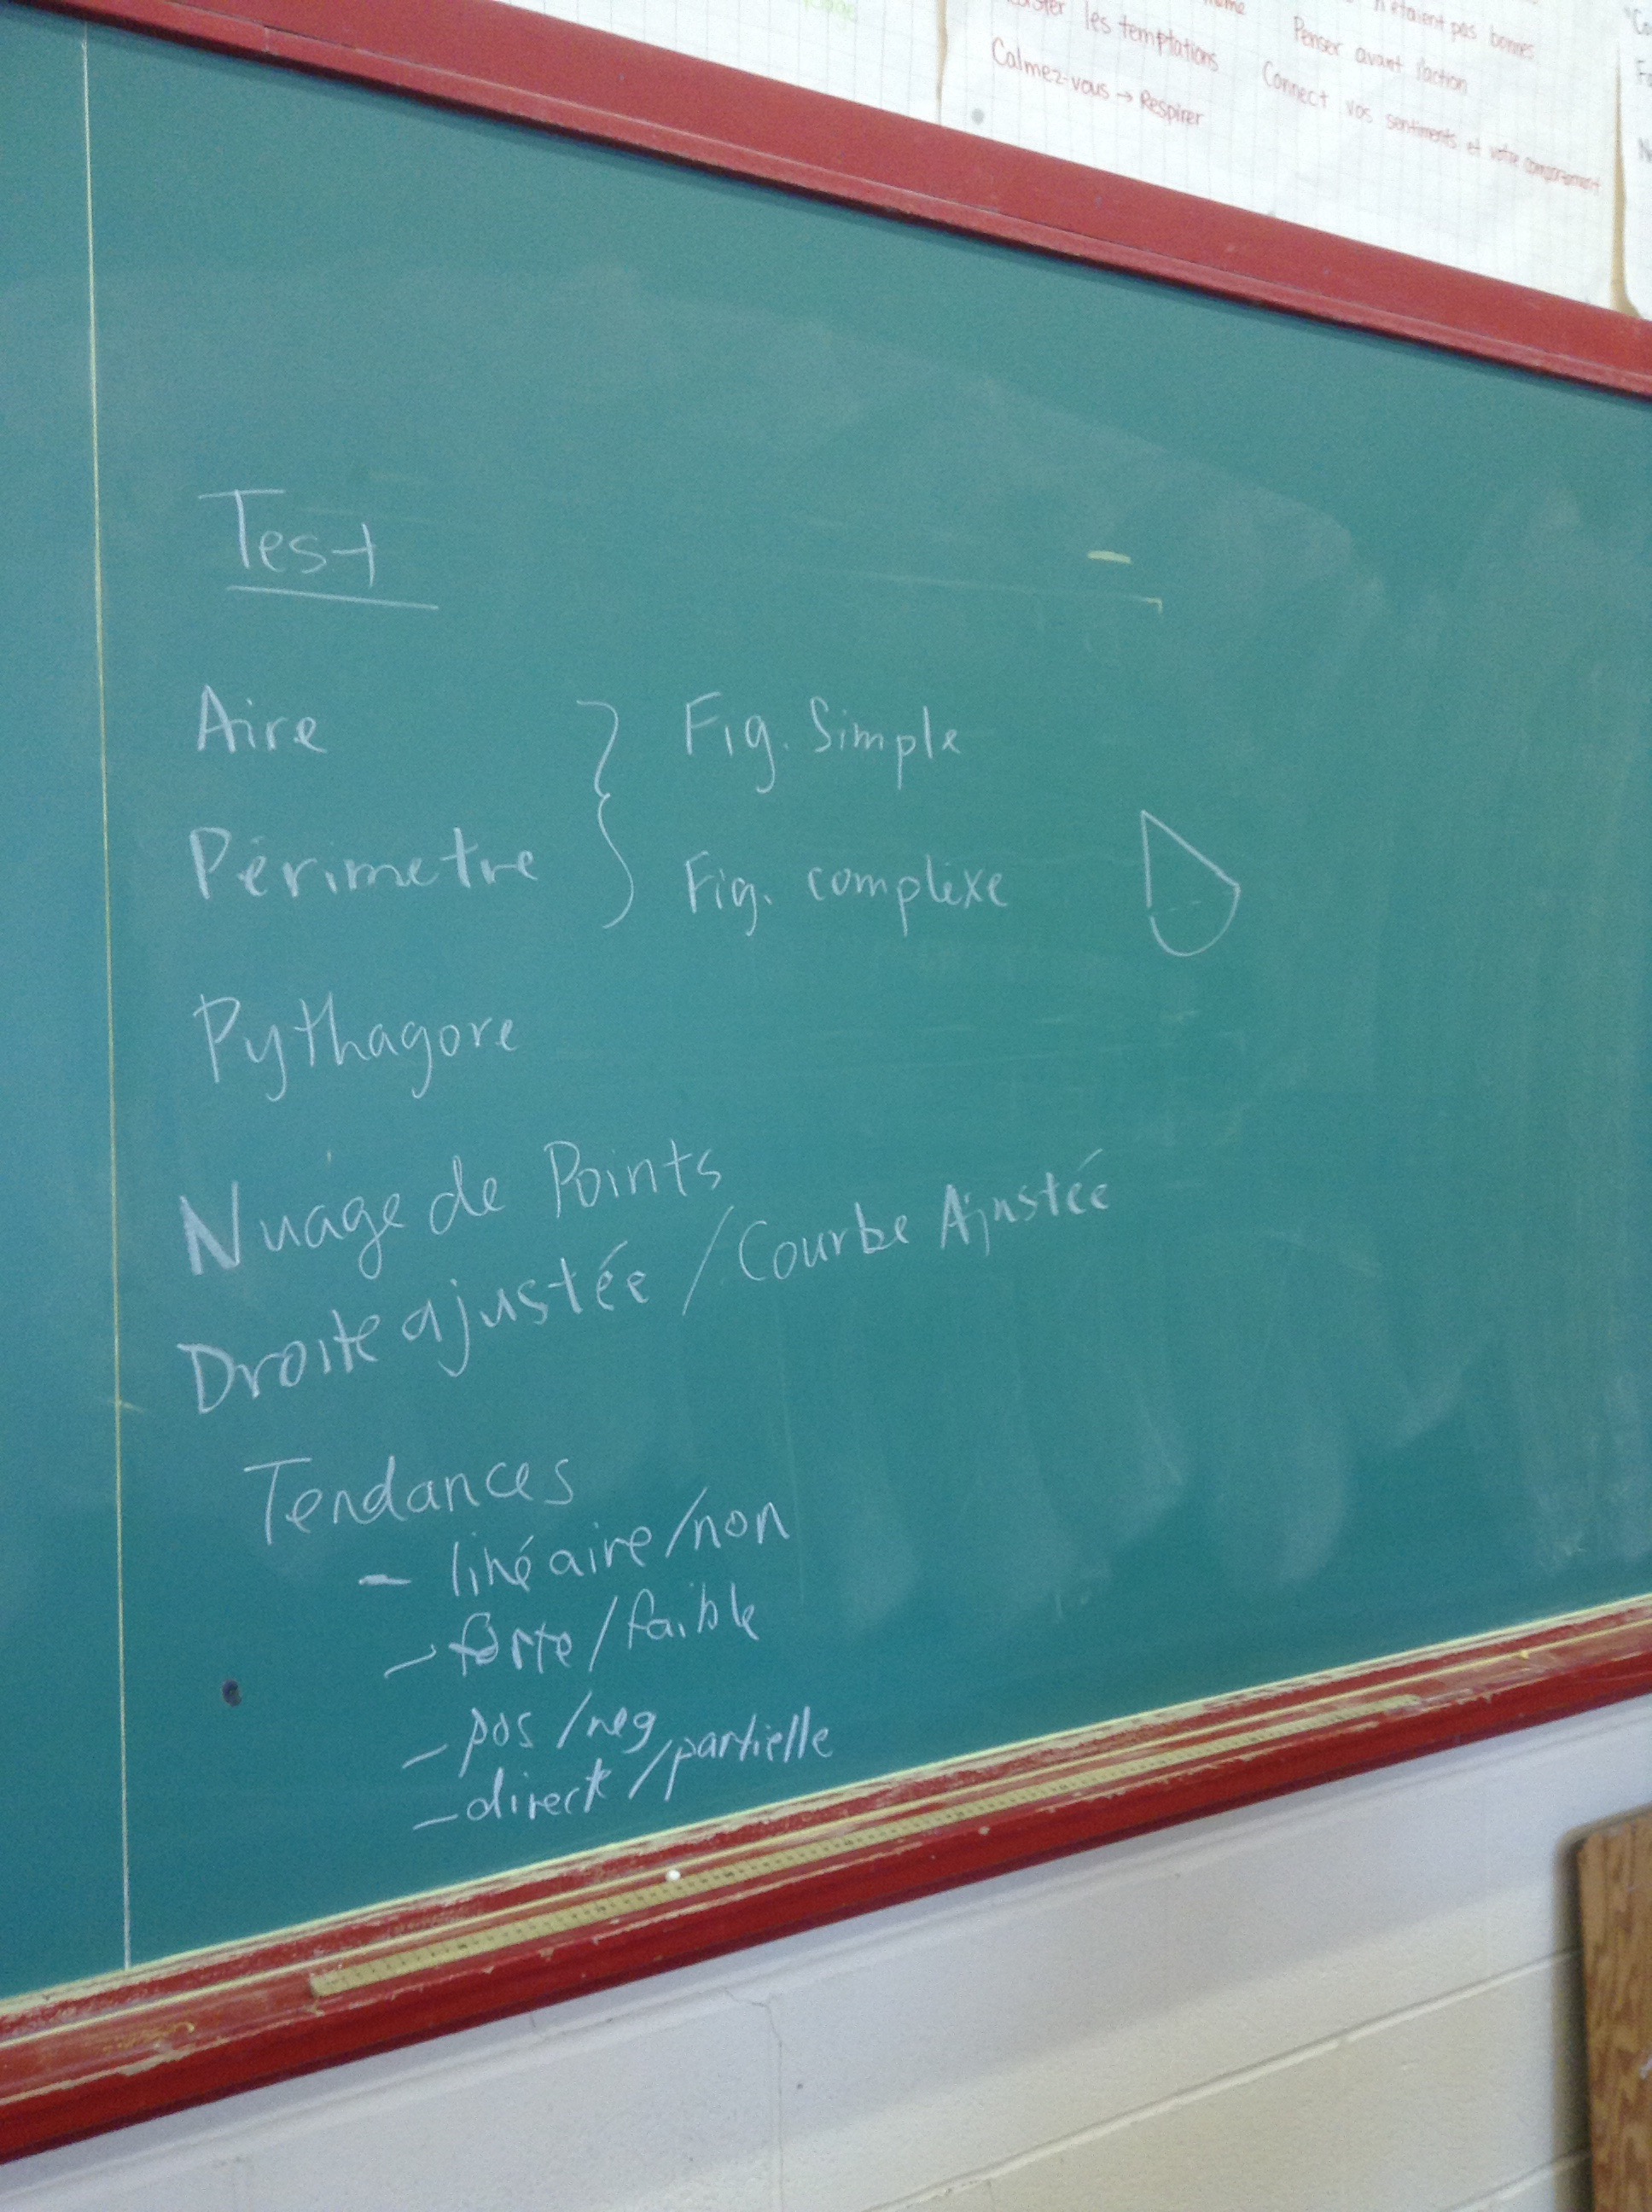 n'étaient pas bonnes
les temptations
Penser avant l'action
Calmez-vous → Respirer
Connect vos sentiments et votre comportement
Test
Aire } Fig. Simple
Périmetre } Fig. complexe
Pythagore
Nuage de Points
Droite ajustée / Courbe Ajustée
Tendances
- linéaire/non
- forte/faible
- pos/neg
- directe/partielle